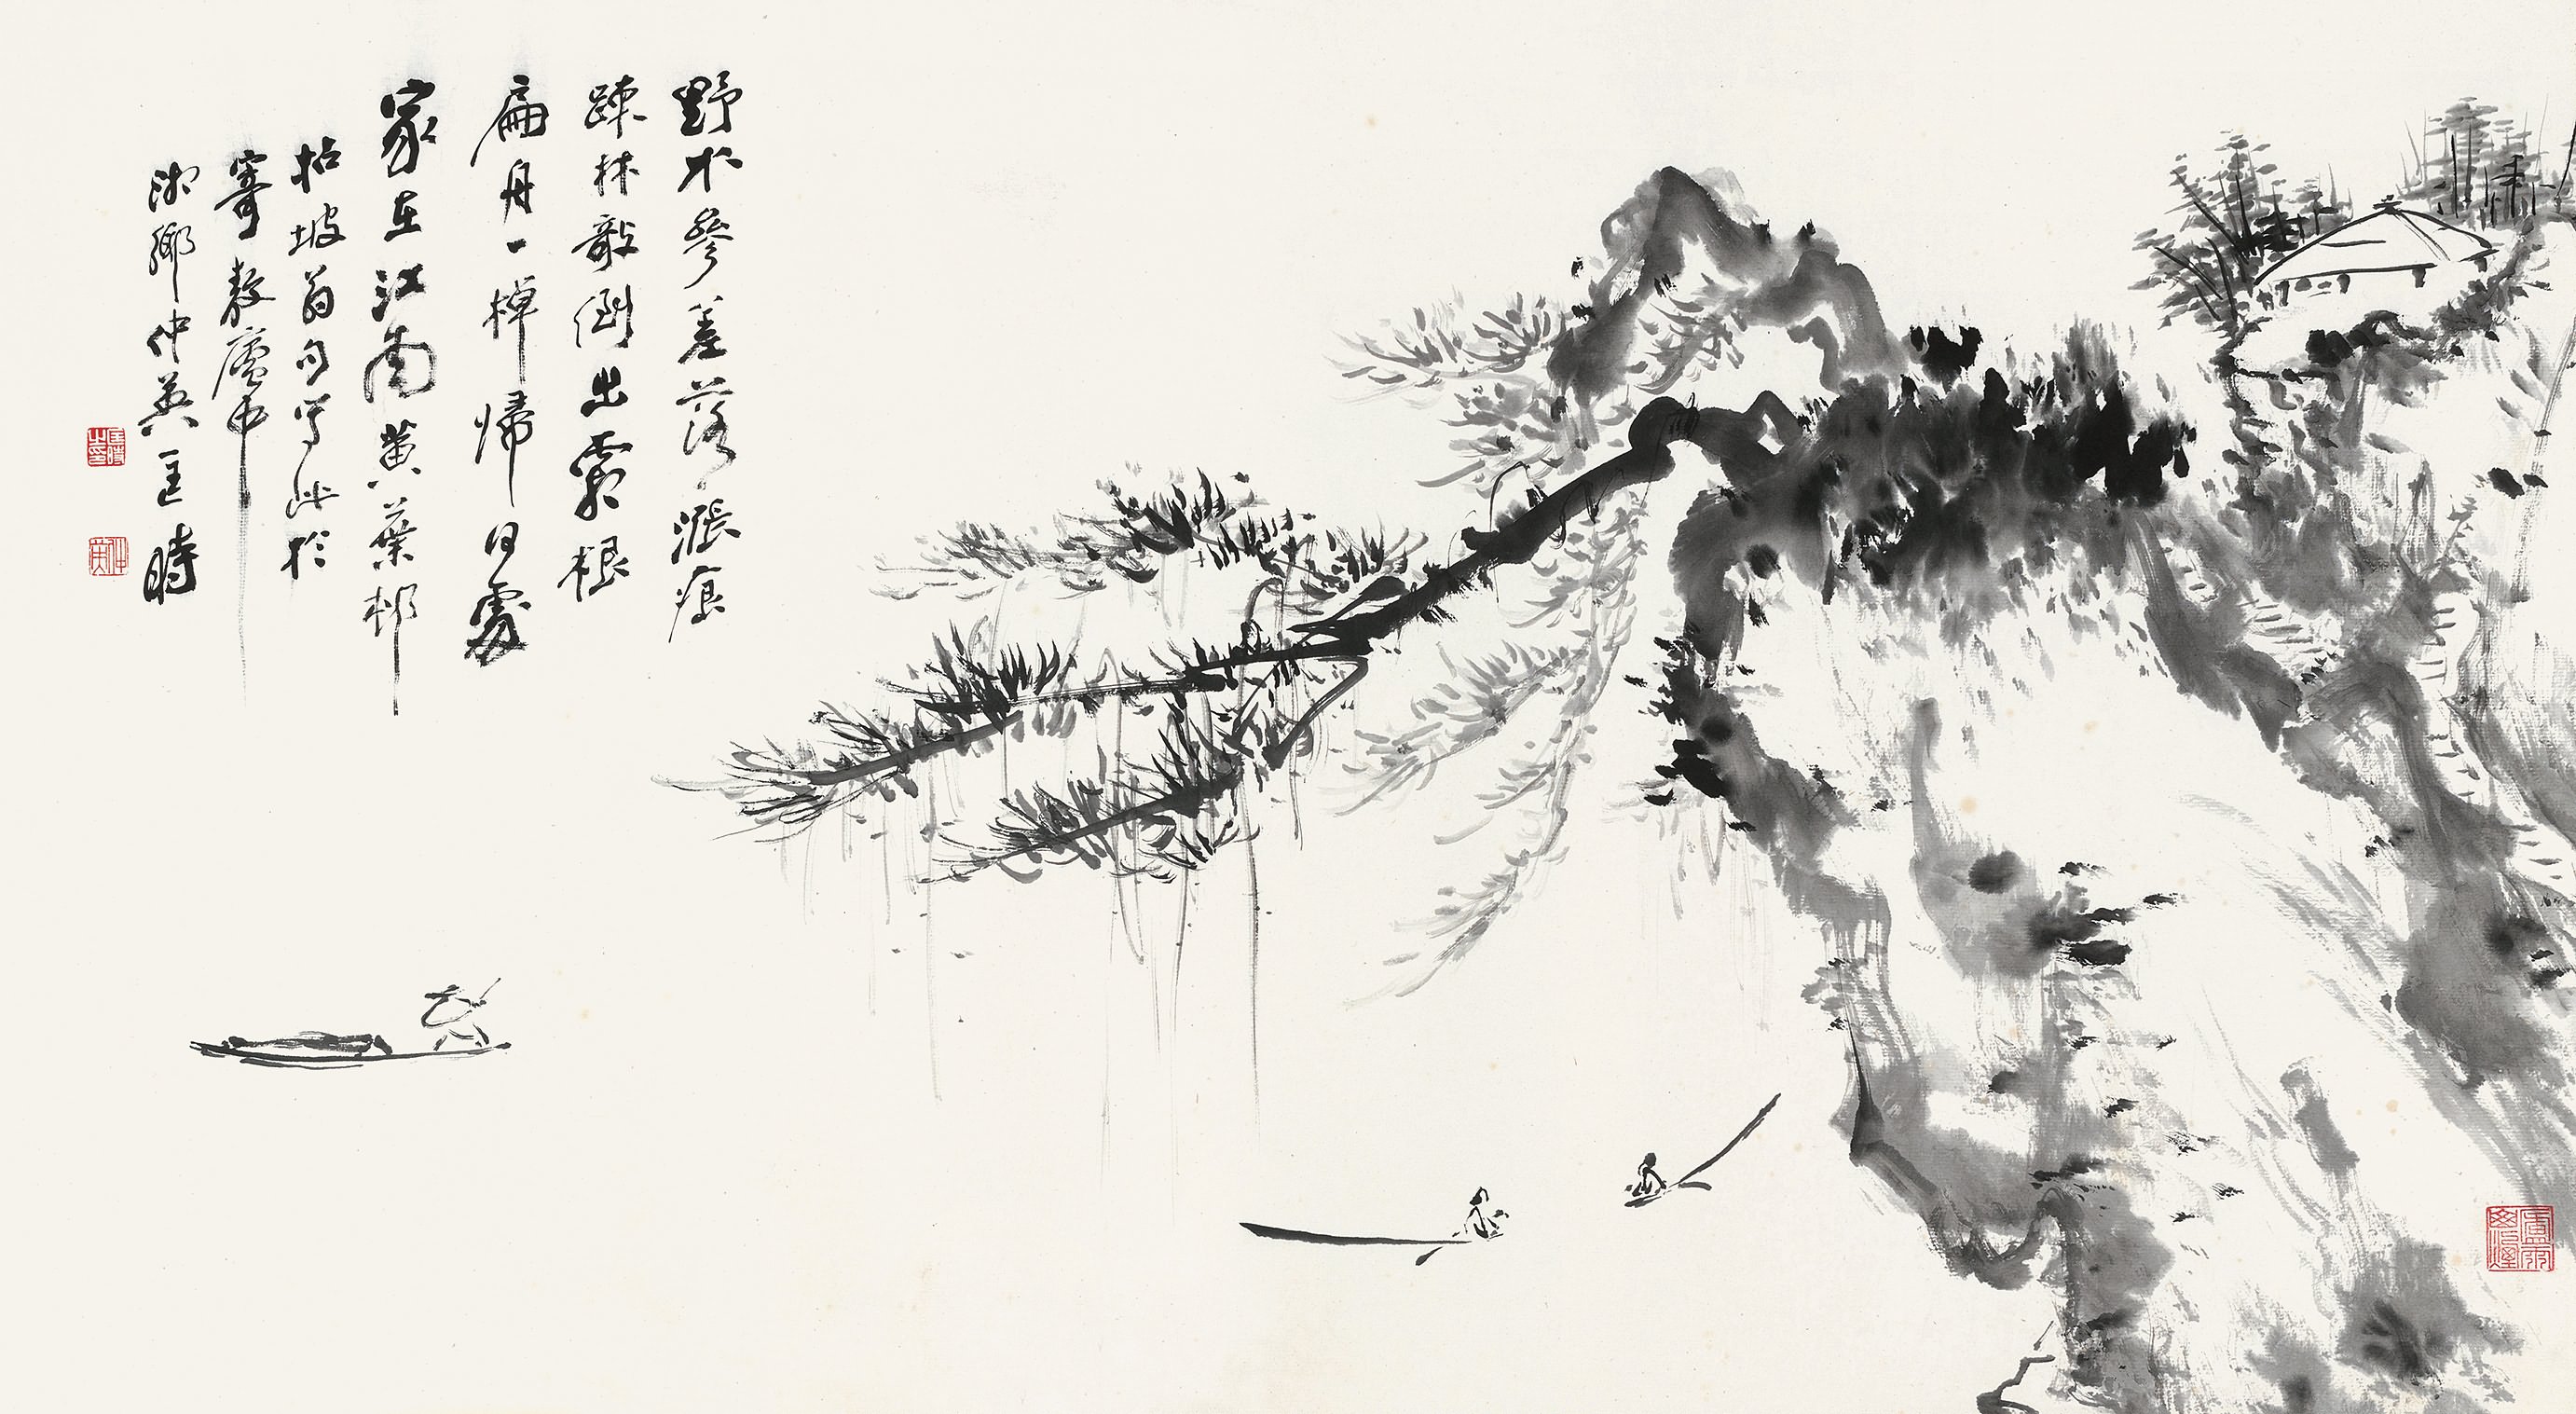 野水參差落漲痕
疎林敧倒出霜根
扁舟一棹歸何處
家在江南黃葉邨
拈坡翁句寫此於
寄敖廬中
湘鄉仲英匡時
仲英